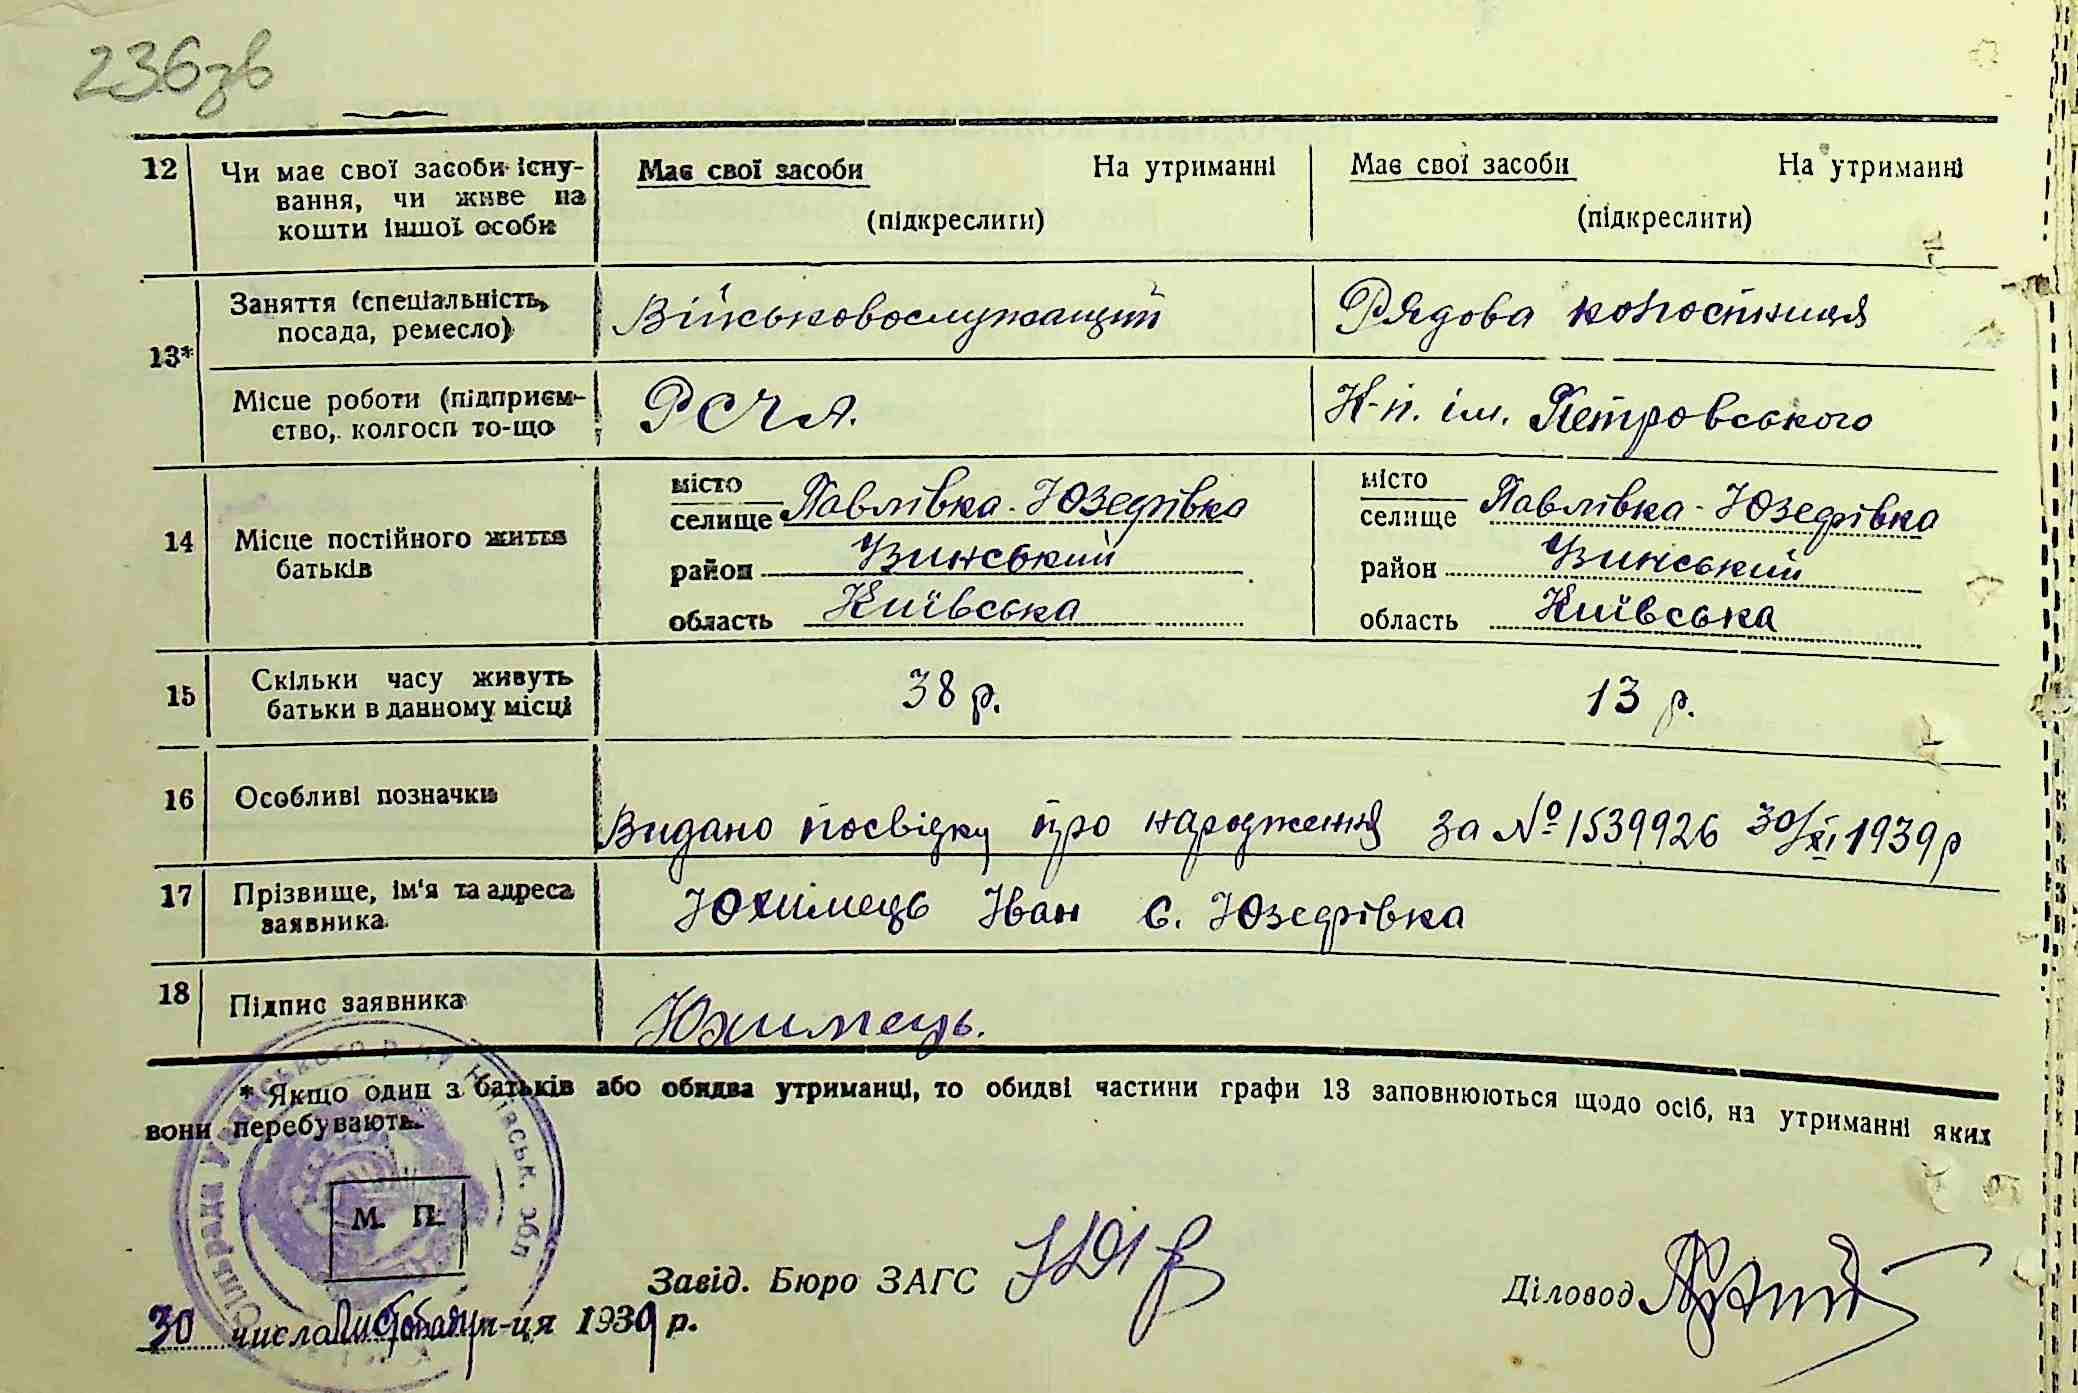 236зв
12 Чи має свої засоби існу-
вання, чи живе на
кошти іншої особи
Має свої засоби На утриманні
(підкреслити)
Має свої засоби На утриманні
(підкреслити)
13*
Заняття (спеціальність,
посада, ремесло)
Військовослужащий
Рядова колгоспниця
Місце роботи (підприєм-
ство, колгосп то-що
РСЧА.
К-п. ім. Петровського
14 Місце постійного життя
батьків
місто
селище Павлівка-Юзефівка
район Узинський
область Київська
місто
селище Павлівка-Юзефівка
район Узинський
область Київська
15 Скільки часу живуть
батьки в данному місці
38 р.
13 р.
16 Особливі позначки
Видано посвідку про народження за № 1539926 30/XI 1939 р
17 Прізвище, ім'я та адреса
заявника
Юхимець Іван с. Юзефівка
18 Підпис заявника
Юхимець.
* Якщо один з батьків або обидва утриманці, то обидві частини графи 13 заповнюються щодо осіб, на утриманні яких
вони перебувають.
М. П.
Завід. Бюро ЗАГС
Діловод
30 числа Листопада м-ця 1939 р.